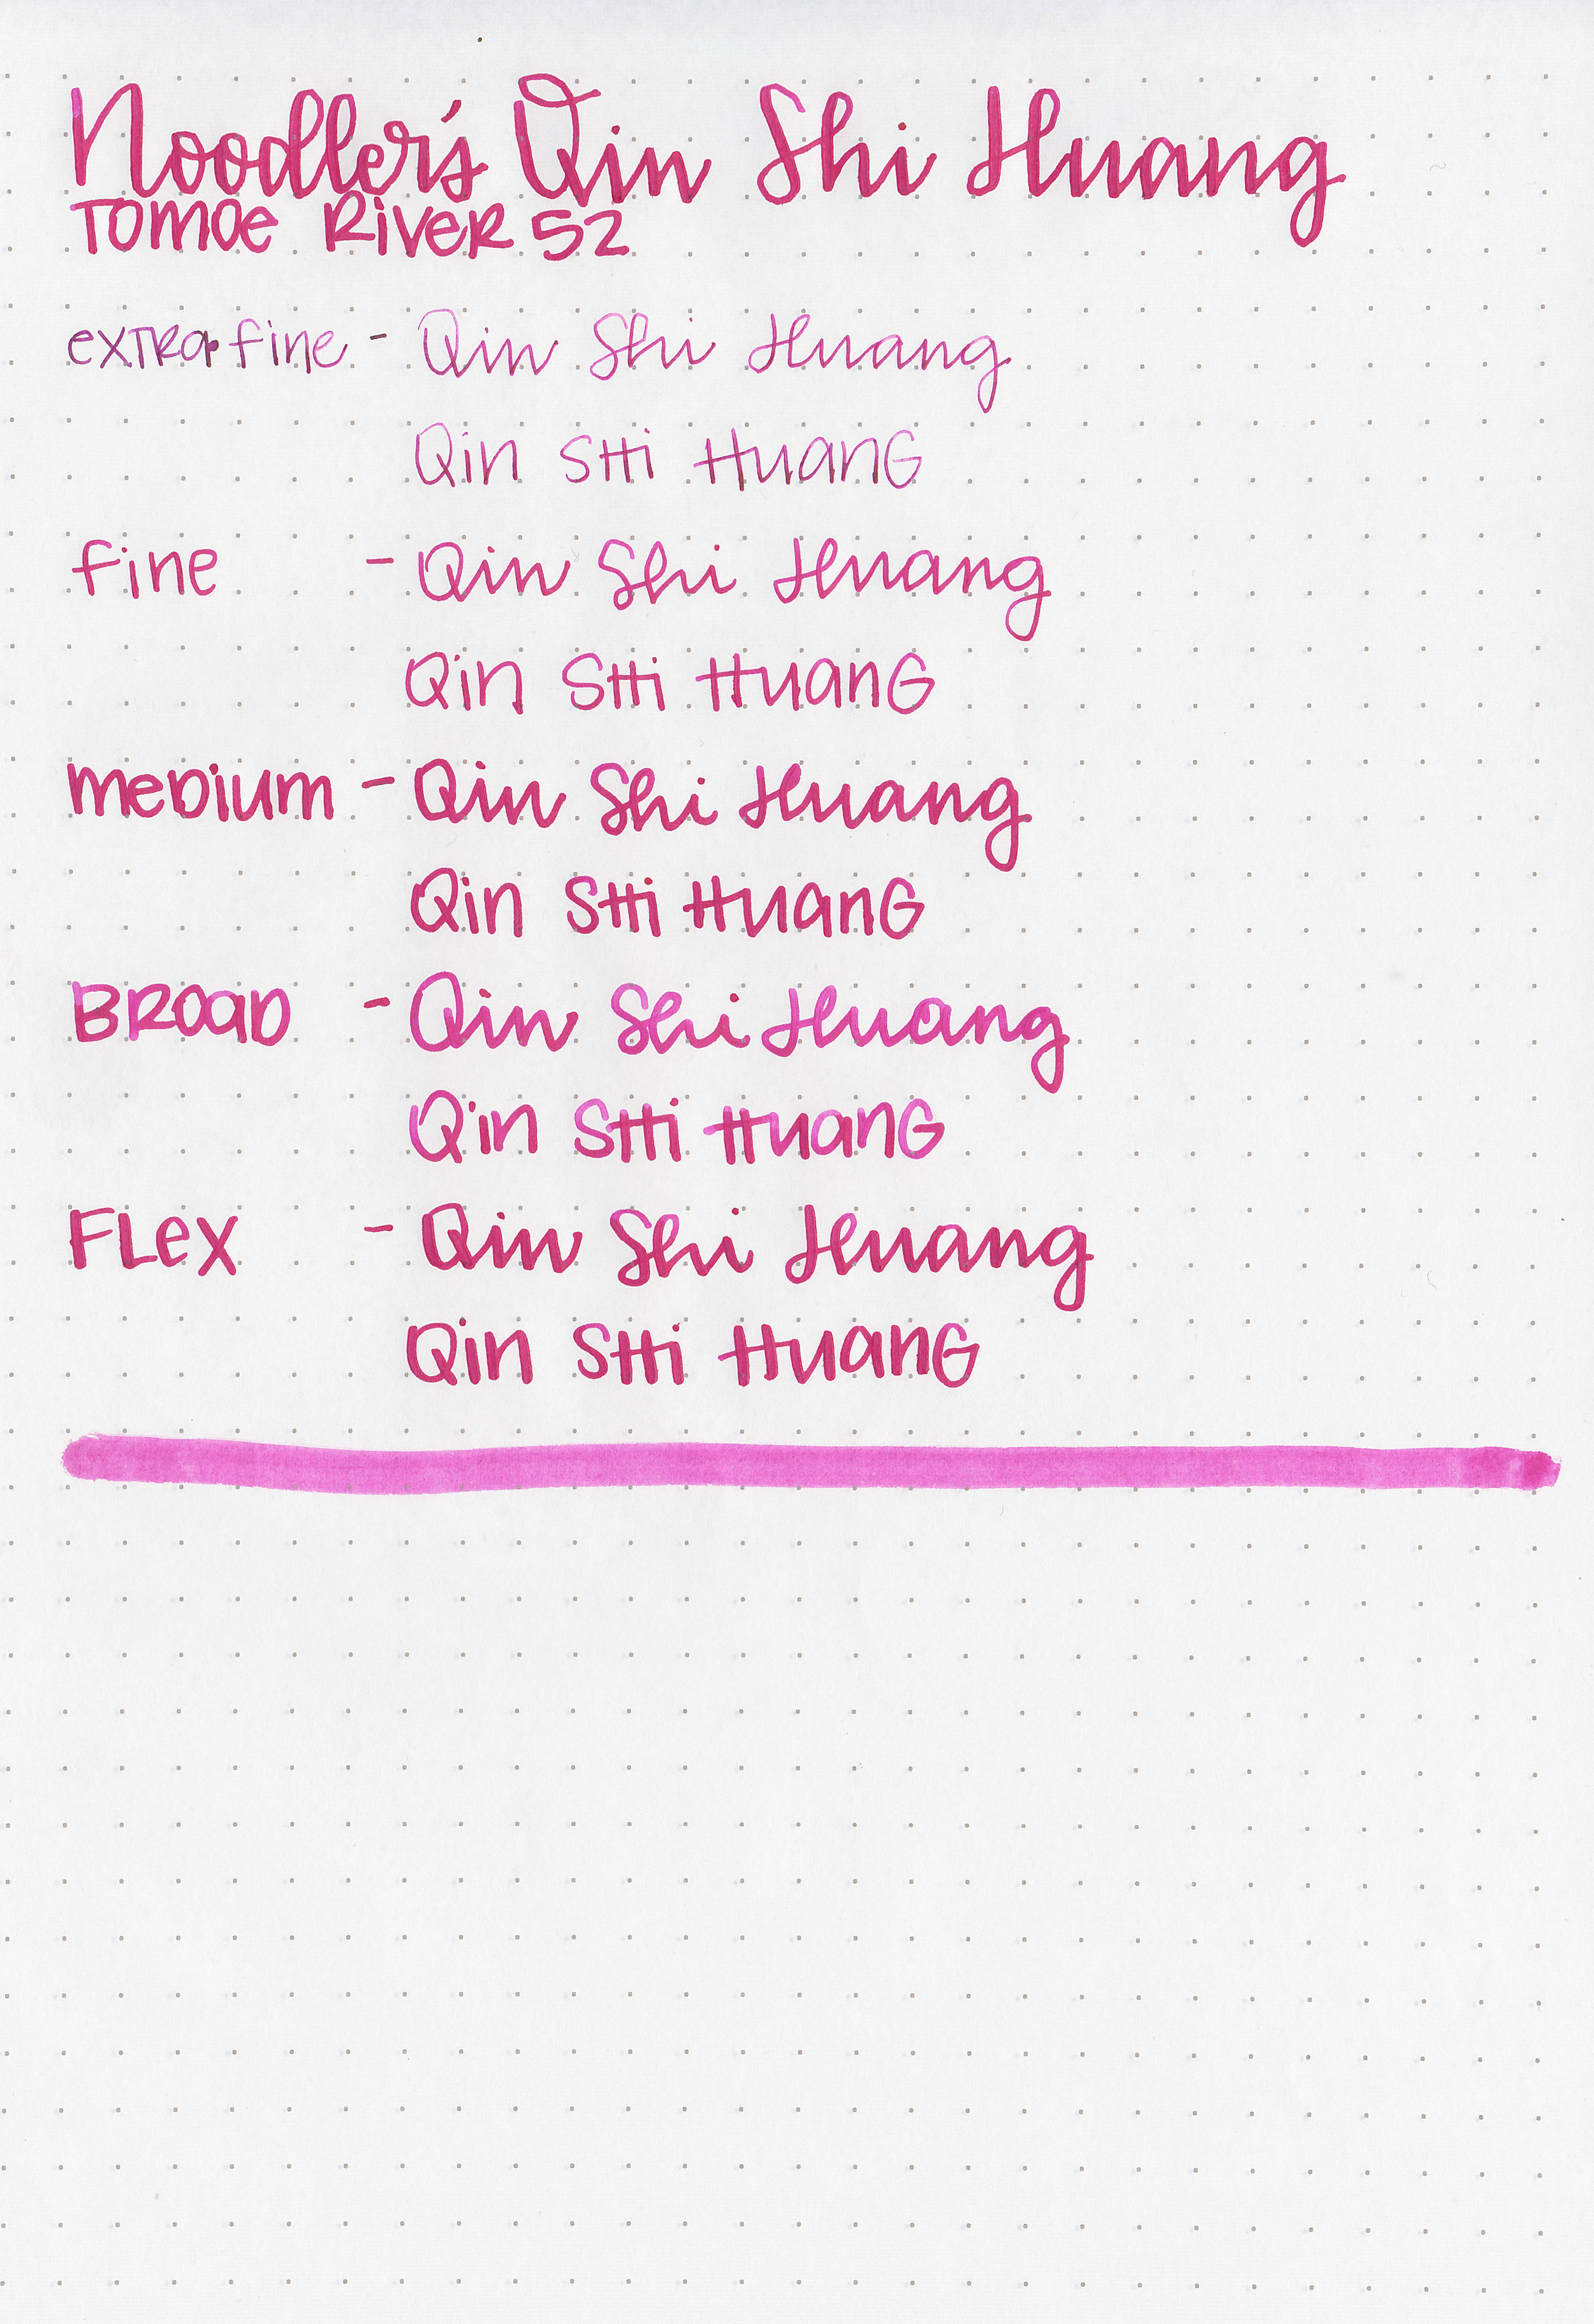 Noodler's Qin Shi Huang
TOMOE RiVER 52
exTRa fine - Qin Shi Huang
Qin SHi HuanG
fine - Qin Shi Huang
Qin SHi HuanG
meDium - Qin Shi Huang
Qin SHi HuanG
BROaD - Qin Shi Huang
Qin SHi HuanG
FLex - Qin Shi Huang
Qin SHi HuanG